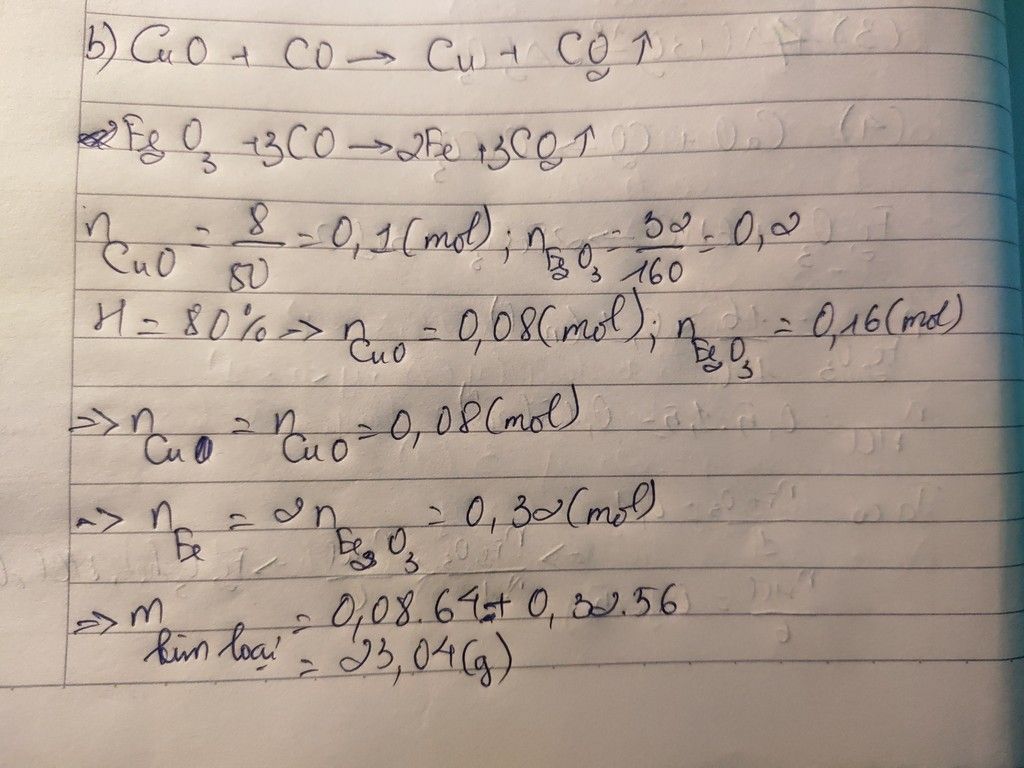 b) CuO + CO → Cu + CO₂ ↑
Fe₂O₃ + 3CO → 2Fe + 3CO₂ ↑
n_CuO = 8/80 = 0,1 (mol) ; n_Fe₂O₃ = 32/160 = 0,2
H = 80% => n_CuO = 0,08 (mol) ; n_Fe₂O₃ = 0,16 (mol)
=> n_Cu = n_CuO = 0,08 (mol)
=> n_Fe = 2n_Fe₂O₃ = 0,32 (mol)
=> m_kim loại = 0,08.64 + 0,32.56
= 23,04 (g)